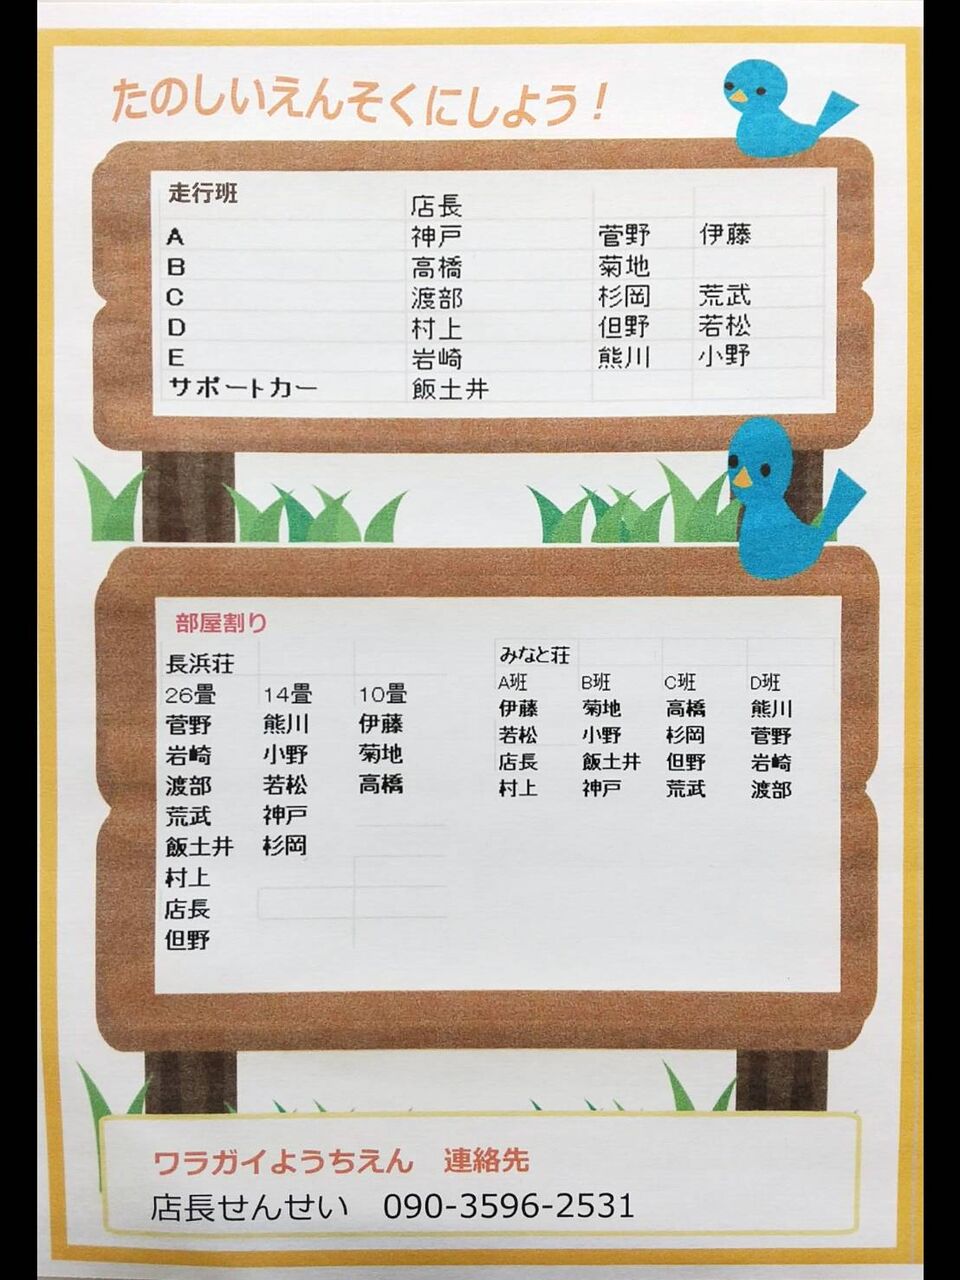 たのしいえんそくにしよう！
走行班 店長
A 神戸 菅野 伊藤
B 高橋 菊地
C 渡部 杉岡 荒武
D 村上 但野 若松
E 岩崎 熊川 小野
サポートカー 飯土井
部屋割り
長浜荘
26畳 14畳 10畳
菅野 熊川 伊藤
岩崎 小野 菊地
渡部 若松 高橋
荒武 神戸
飯土井 杉岡
村上
店長
但野
みなと荘
A班 B班 C班 D班
伊藤 菊地 高橋 熊川
若松 小野 杉岡 菅野
店長 飯土井 但野 岩崎
村上 神戸 荒武 渡部
ワラガイようちえん 連絡先
店長せんせい 090-3596-2531